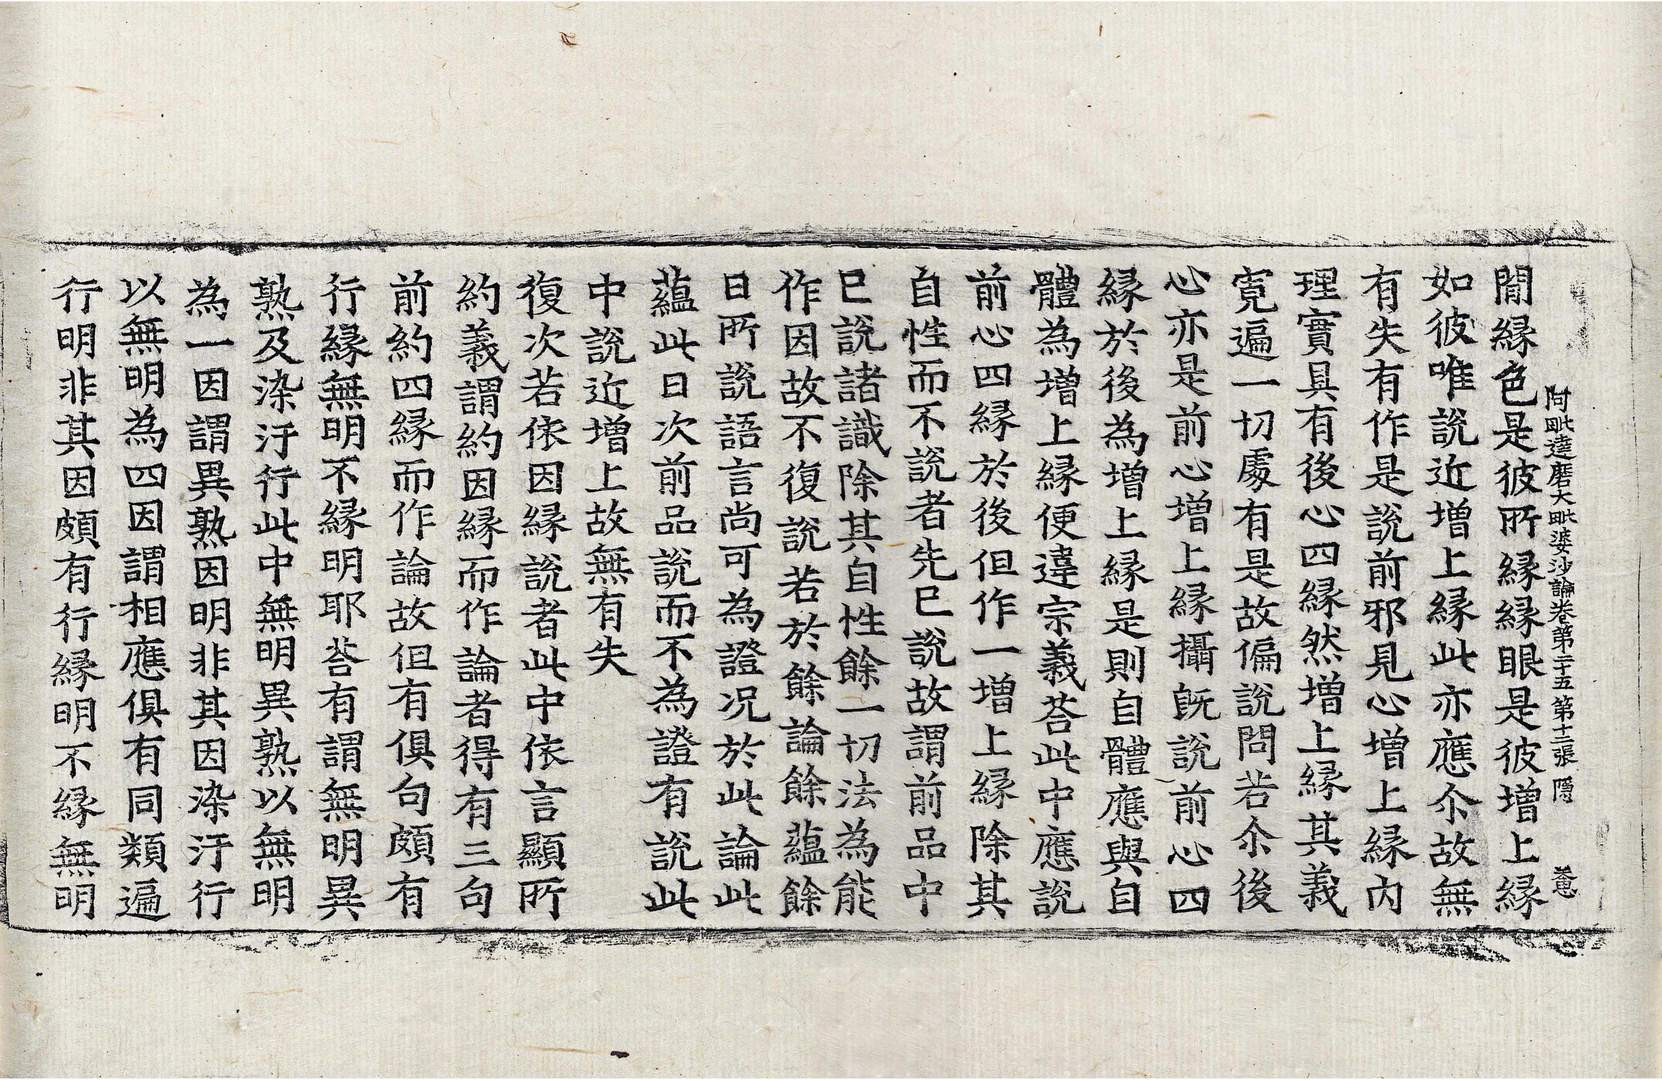 阿毗達磨大毗婆沙論卷第二十五 第十二張 隱
閒縁色是彼所縁縁眼是彼增上縁
如彼唯說近增上縁此亦應尒故無
有失有作是說前邪見心增上縁內
理實具有後心四縁然增上縁其義
寛遍一切處有是故偏說問若尒後
心亦是前心增上縁攝旣說前心四
縁於後為增上縁是則自體應與自
體為增上縁便違宗義荅此中應說
前心四縁於後但作一增上縁除其
自性而不說者先已說故謂前品中
已說諸識除其自性餘一切法為能
作因故不復說若於餘論餘蘊餘
日所說語言尚可為證况於此論此
蘊此日次前品說而不為證有說此
中說近增上故無有失
復次若依因縁說者此中依言顯所
約義謂約因縁而作論者得有三句
前約四縁而作論故但有俱句頗有
行縁無明不縁明耶荅有謂無明異
熟及染汙行此中無明異熟以無明
為一因謂異熟因明非其因染汙行
以無明為四因謂相應俱有同類遍
行明非其因頗有行縁明不縁無明